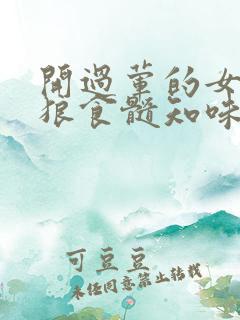 開過葷的女
狼食髓知味
可豆豆
未經同意禁止轉載